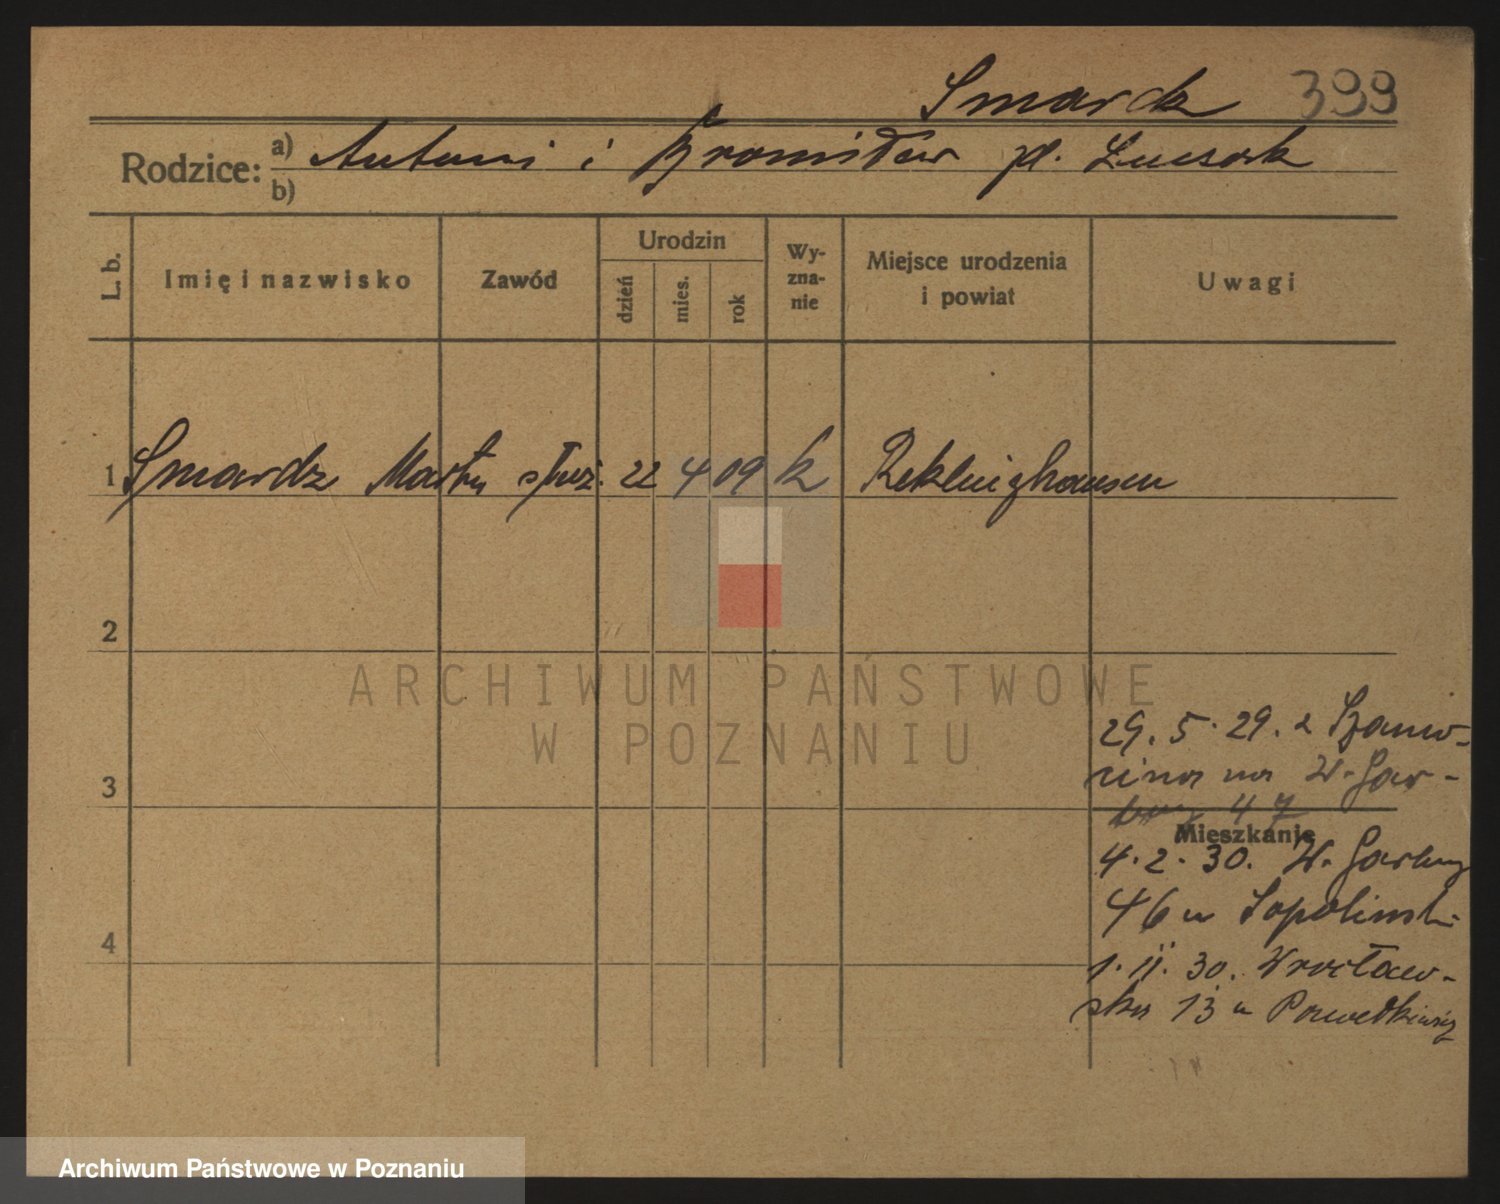 Smardz 399
Rodzice: a) Antoni i Bronisław zd. Luczak
b)
L. b. Imię i nazwisko Zawód Urodzin dzień mies. rok Wy-zna-nie Miejsce urodzenia i powiat Uwagi
1 Smardz Marta służ. 22 4 09 k Reklinghausen
2
ARCHIWUM PAŃSTWOWE
W POZNANIU
29. 5. 29. z
3 na W. Gar-
bary 47
Mieszkanie
4. 2. 30. W. Garbary
46 u Sopolinski
4
1. 11. 30. Wrocław-
ska 13 u
Archiwum Państwowe w Poznaniu